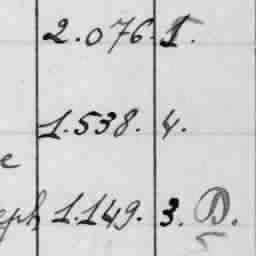 2.076. 1.
1.538. 4.
e
eph 1.149. 3. D.